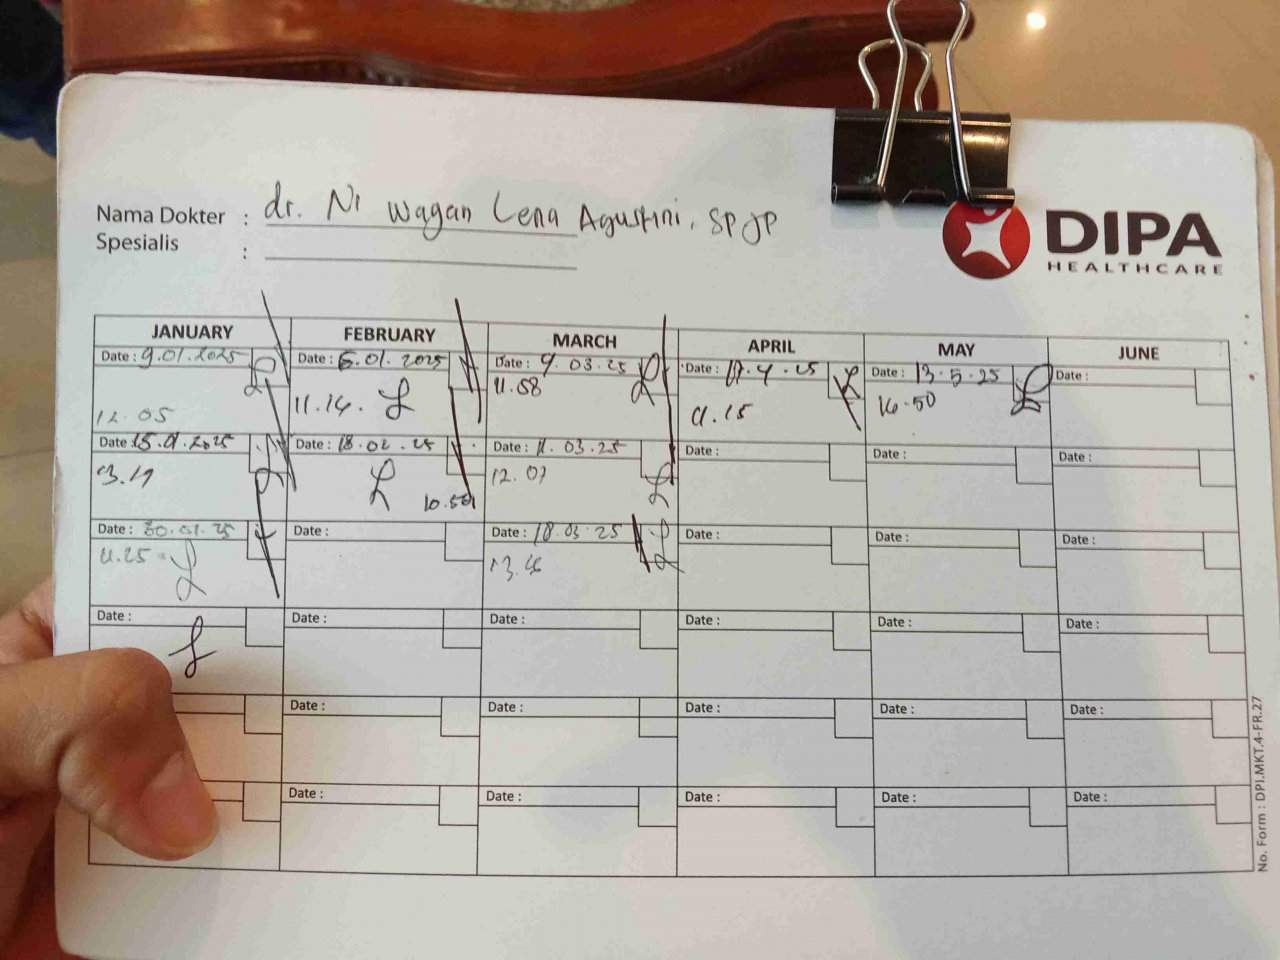 Nama Dokter : dr. Ni Wayan Lena Agustini, SPJP
Spesialis :
DIPA
HEALTHCARE
JANUARY FEBRUARY MARCH APRIL MAY JUNE
Date : 9.01.2025 Date : 6.01.2025 Date : 4.03.25 Date : 17.4.25 Date : 13.5.25 Date :
12.05 11.14. 11.58 11.15 16.50
Date : 15.01.2025 Date : 18.02.25 Date : 11.03.25 Date : Date : Date :
13.19 10.50 12.07
Date : 30.01.25 Date : Date : 18.03.25 Date : Date : Date :
11.25
Date : Date : Date : Date : Date : Date :
Date : Date : Date : Date : Date :
Date : Date : Date : Date : Date :
No. Form : DPI.MKT.4-FR.27